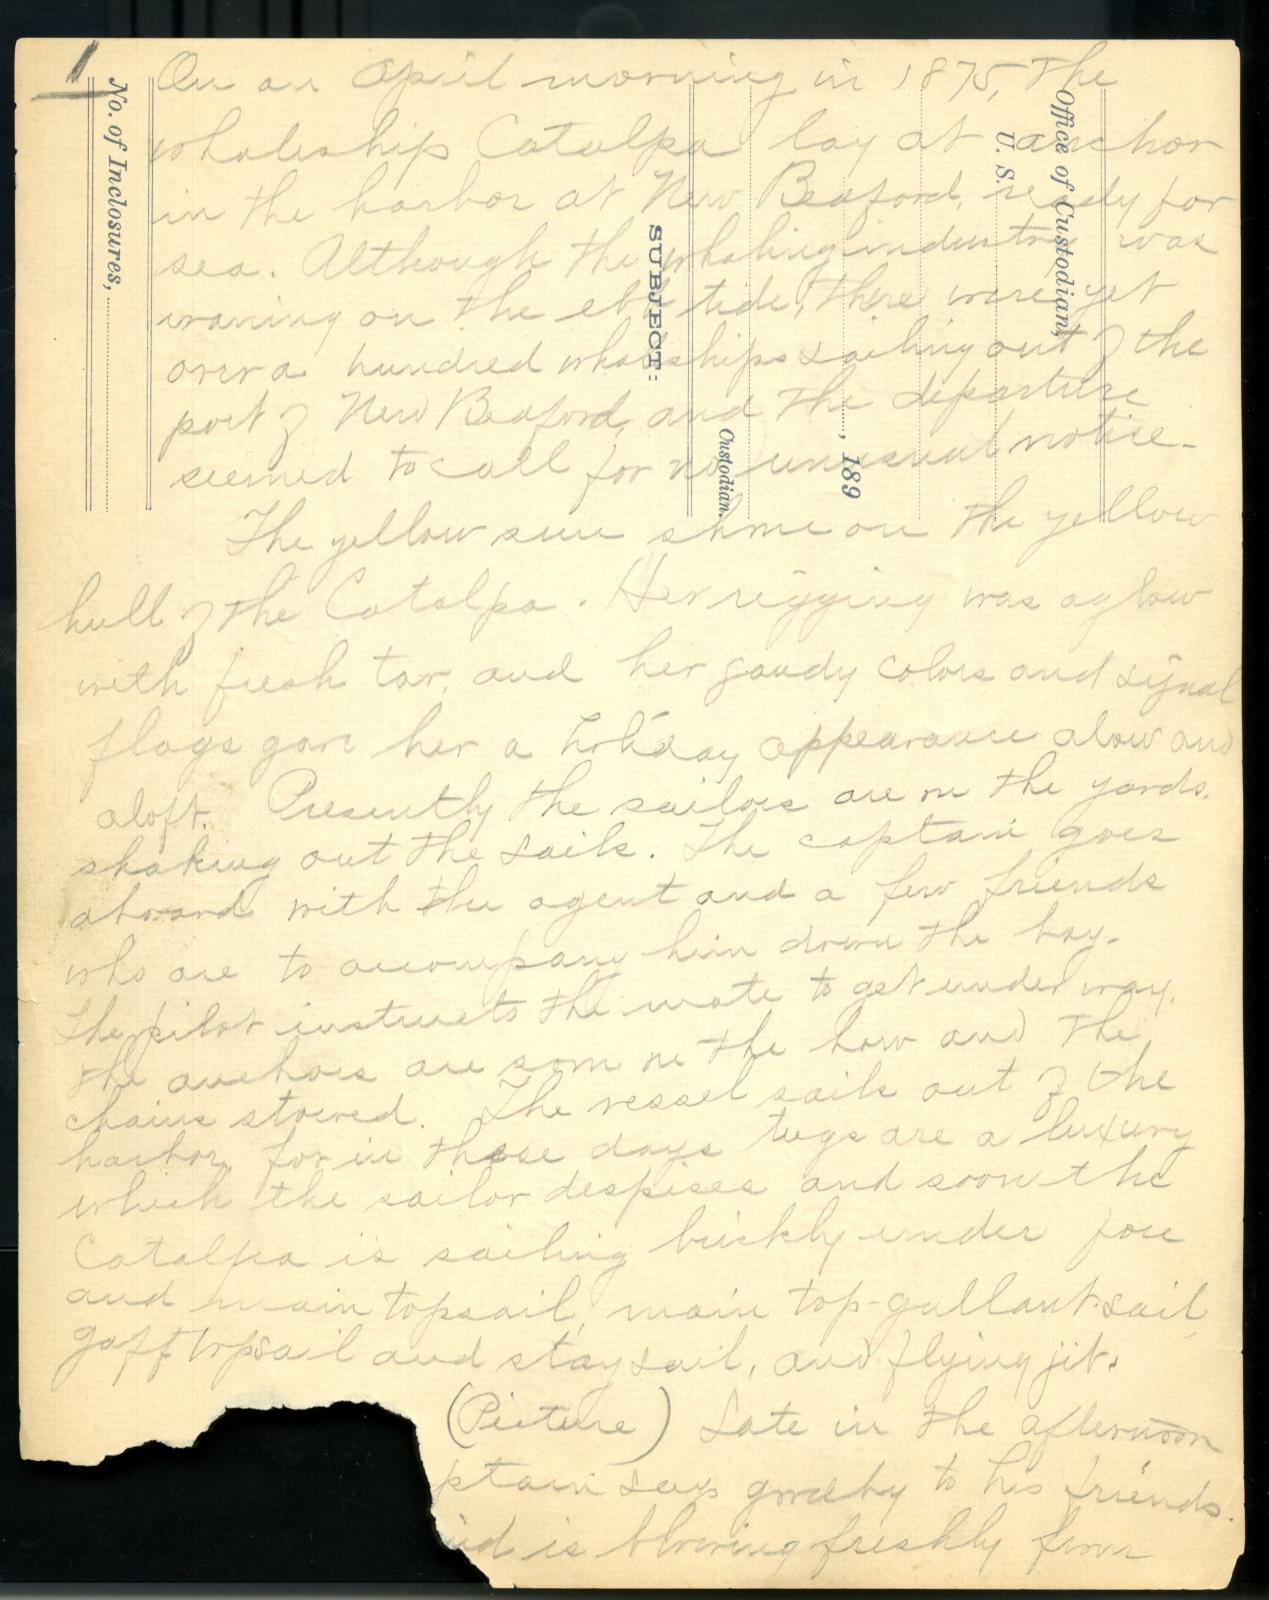 1
On an April morning in 1875, the
whaleship Catalpa lay at anchor
in the harbor at New Bedford, ready for
sea. Although the whaling industry was
waning on the ebb tide, there were yet
over a hundred whaleships sailing out of the
port of New Bedford, and the departure
seemed to call for no unusual notice.
The yellow sun shone on the yellow
hull of the Catalpa. Her rigging was aglow
with fresh tar, and her gaudy colors and signal
flags gave her a holiday appearance alow and
aloft. Presently the sailors are on the yards,
shaking out the sails. The captain goes
aboard with the agent and a few friends
who are to accompany him down the bay.
The pilot instructs the mate to get under way,
the anchors are soon on the bow and the
chains stowed. The vessel sails out of the
harbor, for in those days tugs are a luxury
which the sailor despises and soon the
Catalpa is sailing briskly under fore
and main topsail, main top-gallant-sail,
gaff topsail and staysail, and flying jib.
(Picture) Late in the afternoon
ptain says goodby to his friends.
ind is blowing freshly from
No. of Inclosures,
SUBJECT:
Custodian.
, 189
U. S.
Office of Custodian,